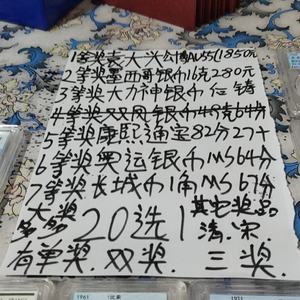 1等奖袁大头公博AU55(1850元
2等奖墨西哥银币16克280元
3等奖大力神银币后铸
4等奖双凤银币49克64分
5等奖康熙通宝82分27+
6等奖奥运银币MS64分
7等奖长城币1角MS67分
大奖
多多
20选1
其它奖品
清.宋.
有单奖.双奖.三奖.
1961
1971